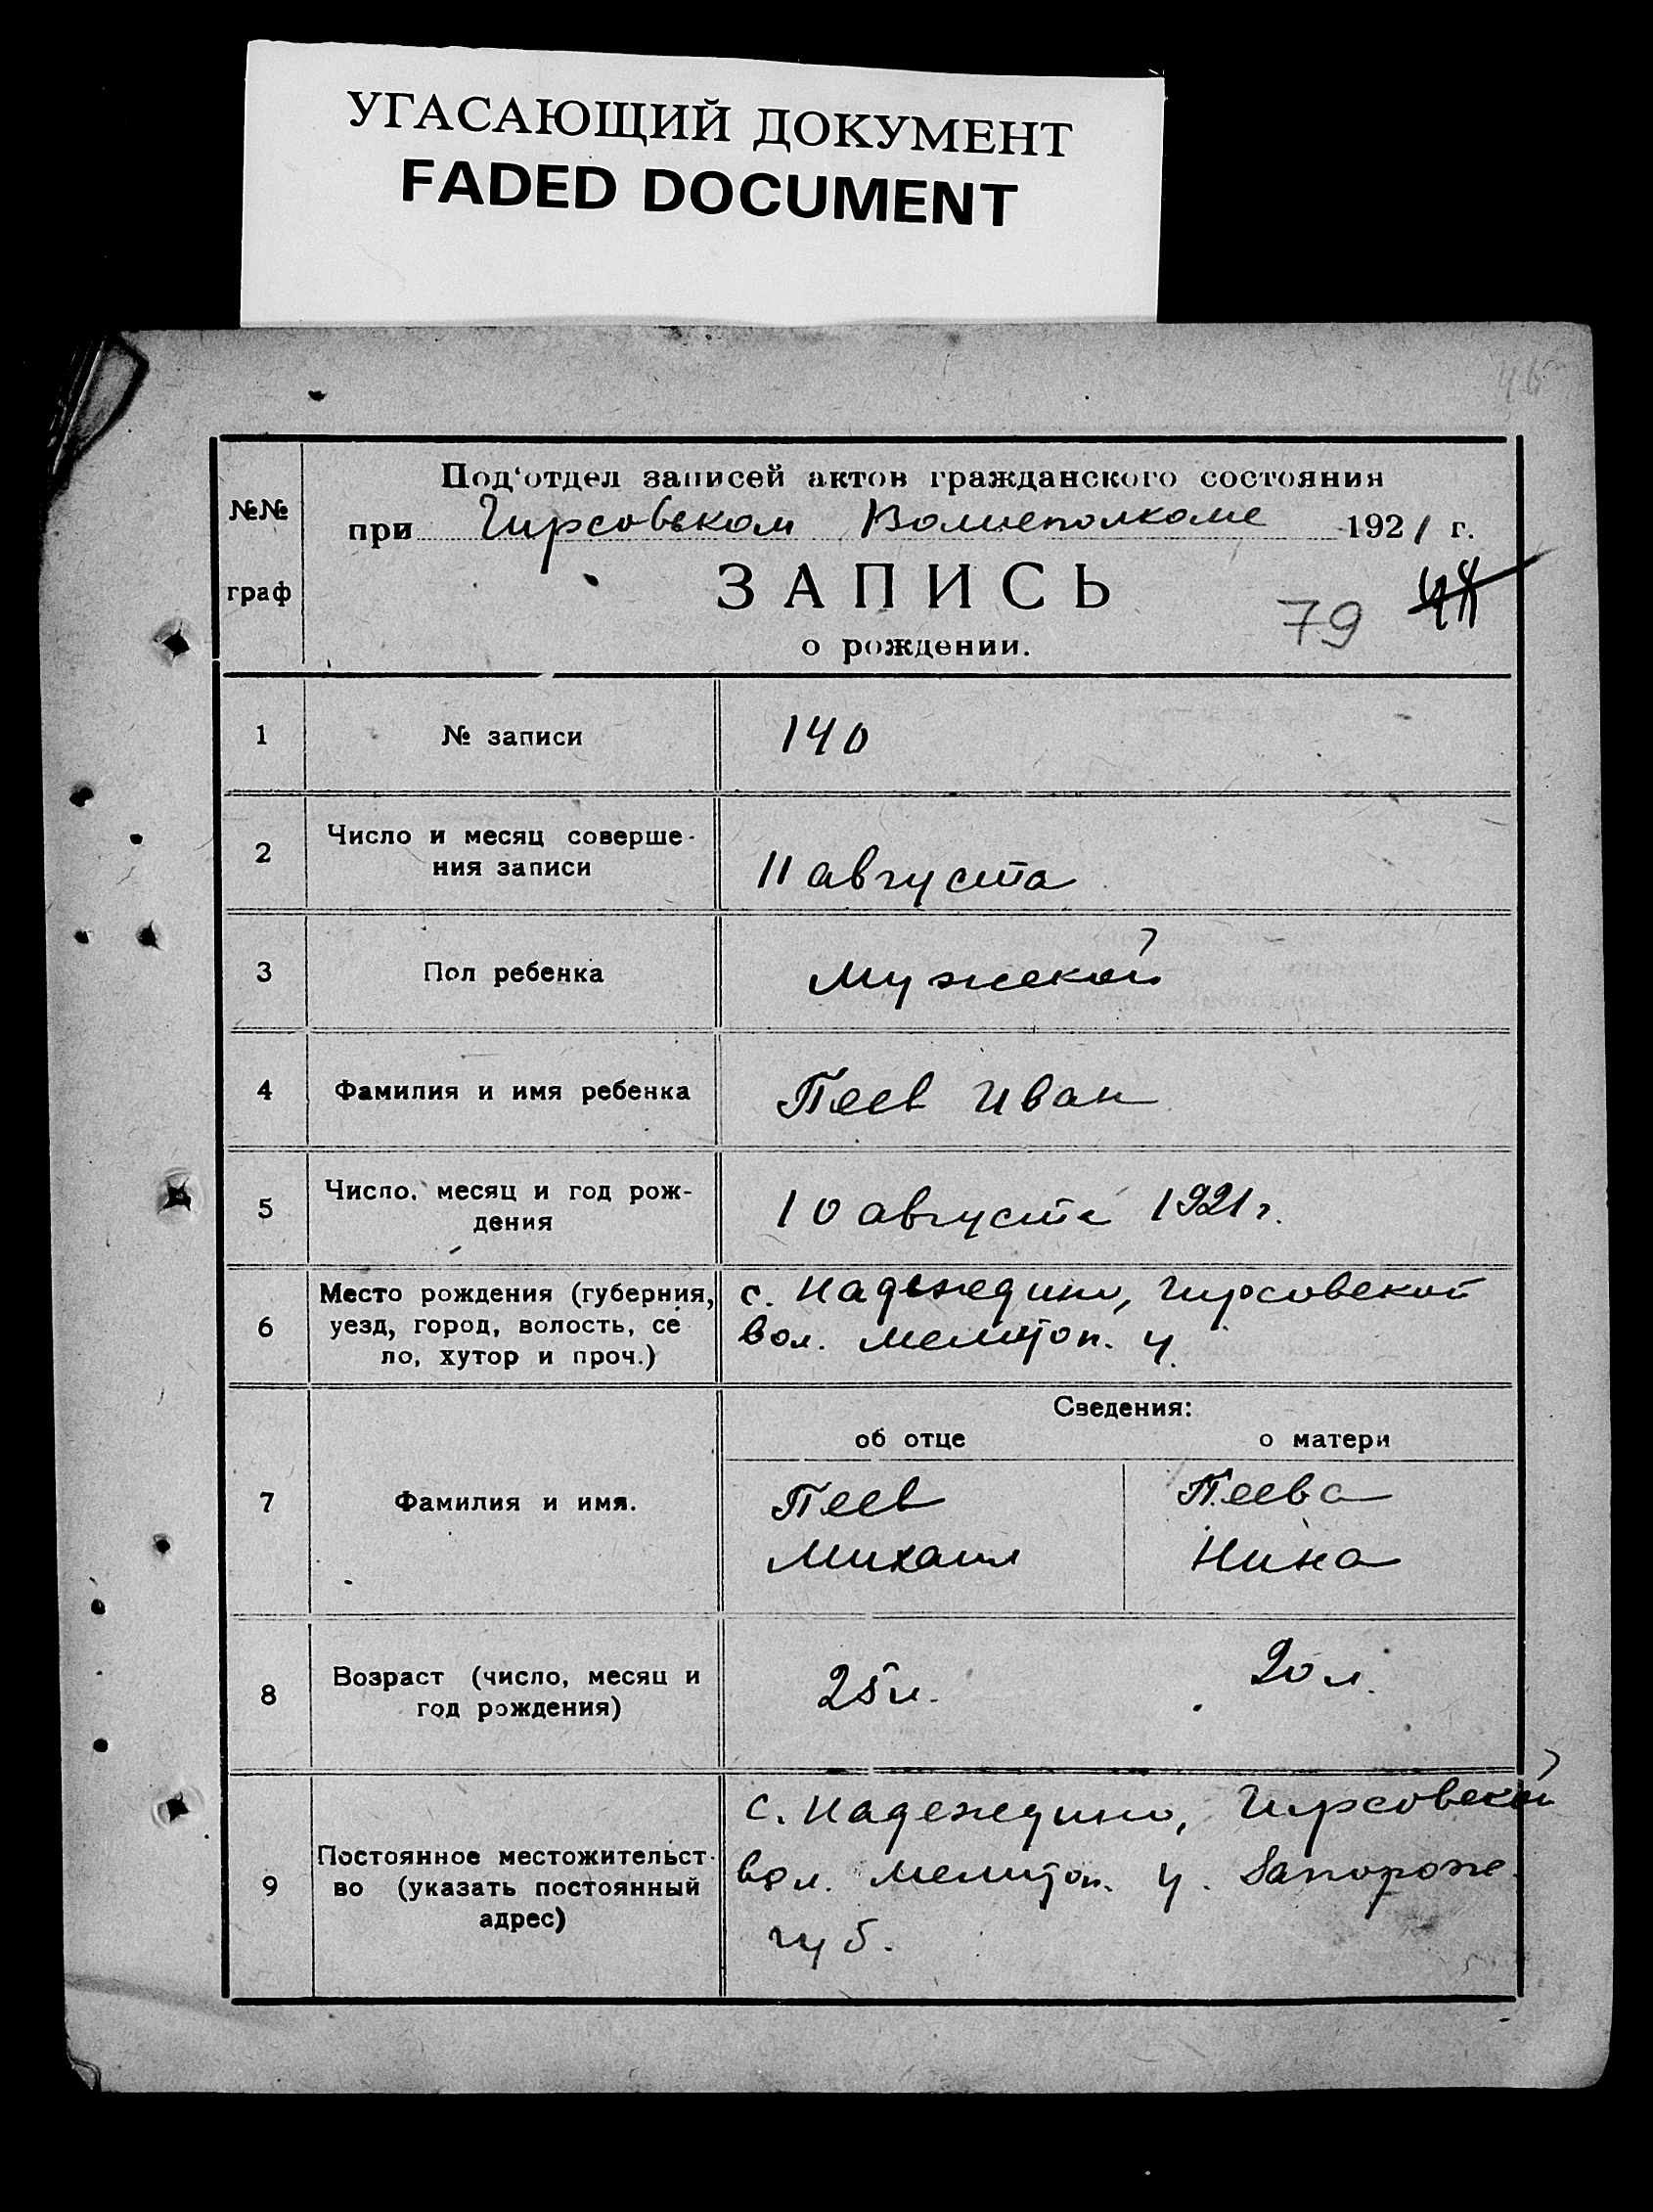 УГАСАЮЩИЙ ДОКУМЕНТ
FADED DOCUMENT
№№
граф
Под‘отдел записей актов гражданского состояния
при Гирсовском Волисполкоме 1921 г.
ЗАПИСЬ
79
о рождении.
1 № записи 140
2 Число и месяц соверше-
ния записи 11 августа
3 Пол ребенка Мужской
4 Фамилия и имя ребенка Пеев Иван
5 Число, месяц и год рож-
дения 10 августа 1921 г.
6 Место рождения (губерния,
уезд, город, волость, се
ло, хутор и проч.)
с. Надеждино, Гирсовской
вол. Мелитоп. у.
Сведения:
об отце о матери
7 Фамилия и имя.
Пеев Пеева
Михаил Нина
8 Возраст (число, месяц и
год рождения)
25 л. 20 л.
9 Постоянное местожительст-
во (указать постоянный
адрес)
с. Надеждино, Гирсовской
вол. Мелитоп. у. Запорож.
губ.